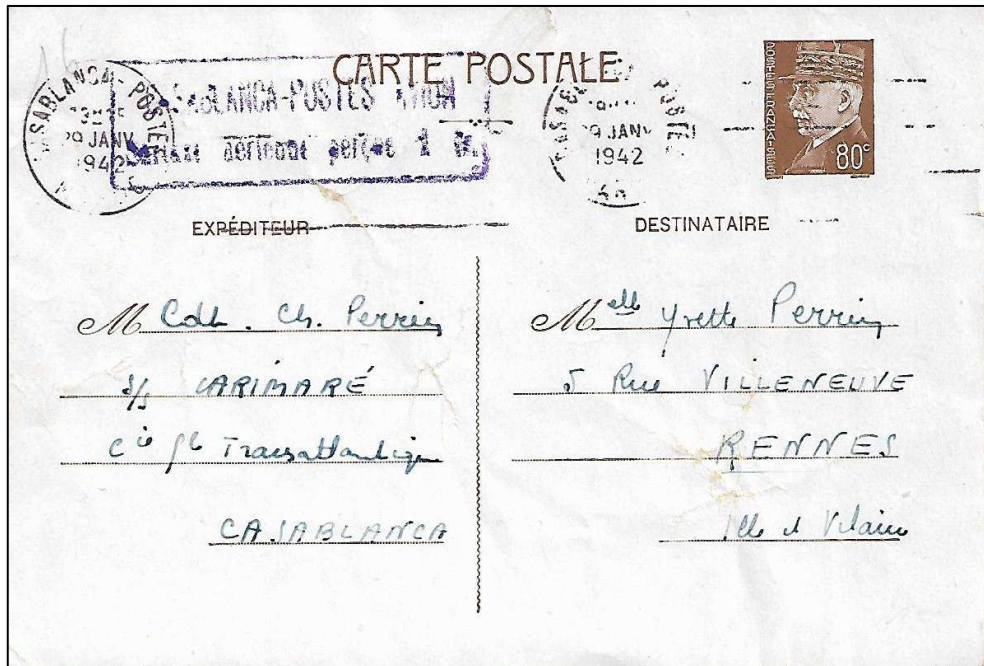 CARTE POSTALE
CASABLANCA - POSTES
29 JANV
1942
CASABLANCA-POSTES AVION
Surtaxe aérienne perçue 1 fr.
CASABLANCA POSTES
29 JANV
1942
POSTES FRANÇAISES
80c
EXPÉDITEUR
M Cdt. Ch. Perrin
s/s CARIMARÉ
Cie Gle Transatlantique
CASABLANCA
DESTINATAIRE
Melle Yvette Perrin
5 Rue VILLENEUVE
RENNES
Ille et Vilaine